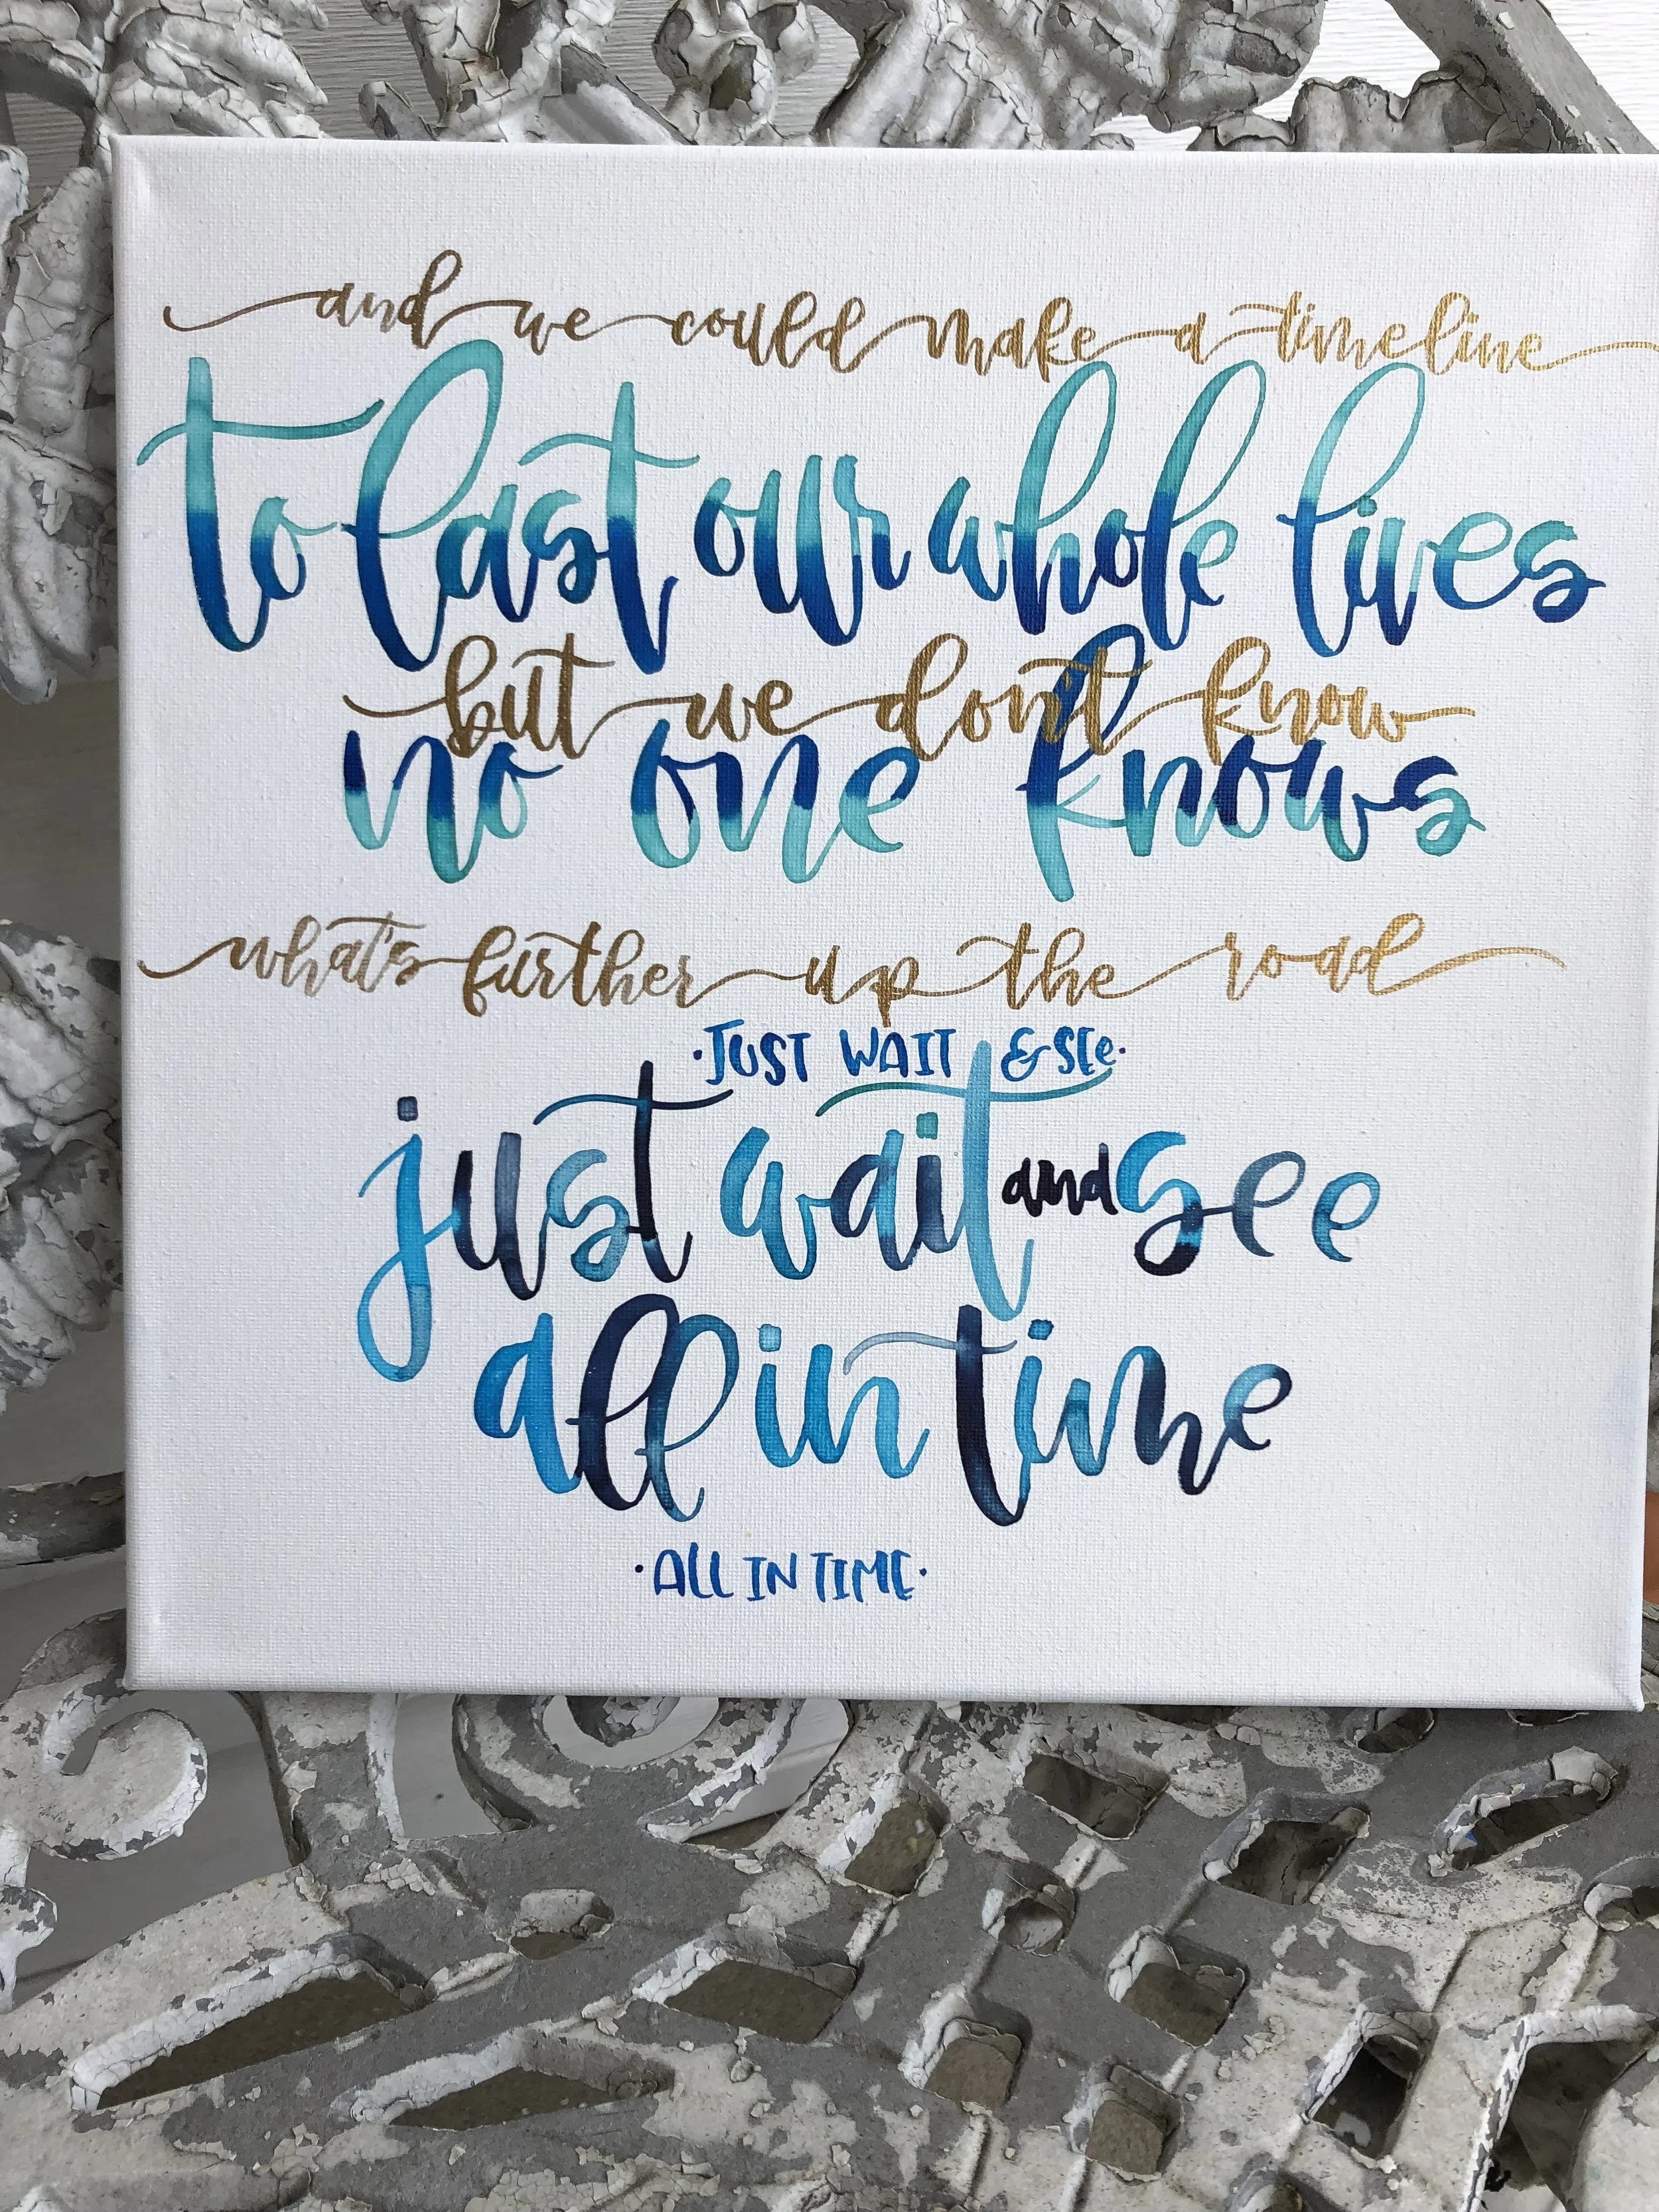 and we could make a timeline
to last our whole lives
but we don't know
no one knows
what's further up the road
·JUST WAIT & SEe·
just wait and see
all in time
·ALL IN TIME·